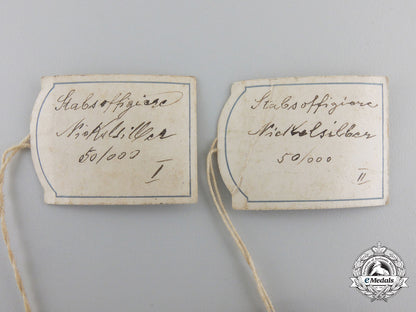 Stabsoffiziere
Nickelsilber
50/000
I
Stabsoffiziere
Nickelsilber
50/000
II
eMedals